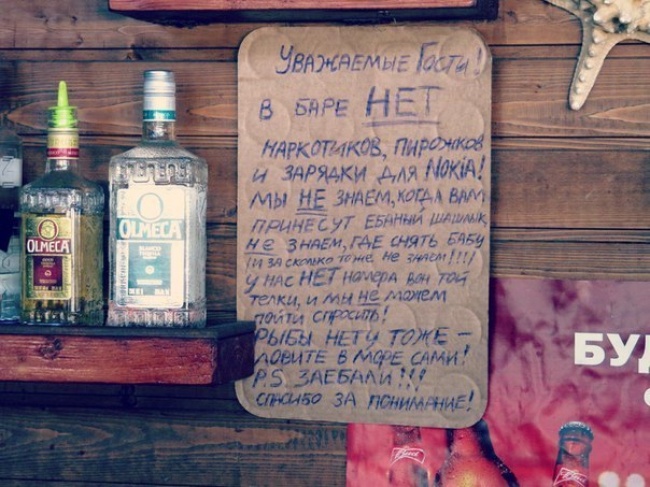 Уважаемые Гости!
В БАРЕ НЕТ
НАРКОТИКОВ, ПИРОЖКОВ
И ЗАРЯДКИ ДЛЯ NOKIA!
МЫ НЕ ЗНАЕМ, КОГДА ВАМ
ПРИНЕСУТ ЕБАНЫЙ ШАШЛЫК,
НЕ ЗНАЕМ, ГДЕ СНЯТЬ БАБУ
(И ЗА СКОЛЬКО ТОЖЕ НЕ ЗНАЕМ!!!)
У НАС НЕТ НОМЕРА ВОН ТОЙ
ТЕЛКИ, И МЫ НЕ МОЖЕМ
ПОЙТИ СПРОСИТЬ!
РЫБЫ НЕТУ ТОЖЕ –
ЛОВИТЕ В МОРЕ САМИ!
P.S. ЗАЕБАЛИ!!!
СПАСИБО ЗА ПОНИМАНИЕ!
OLMECA
OLMECA
БУД